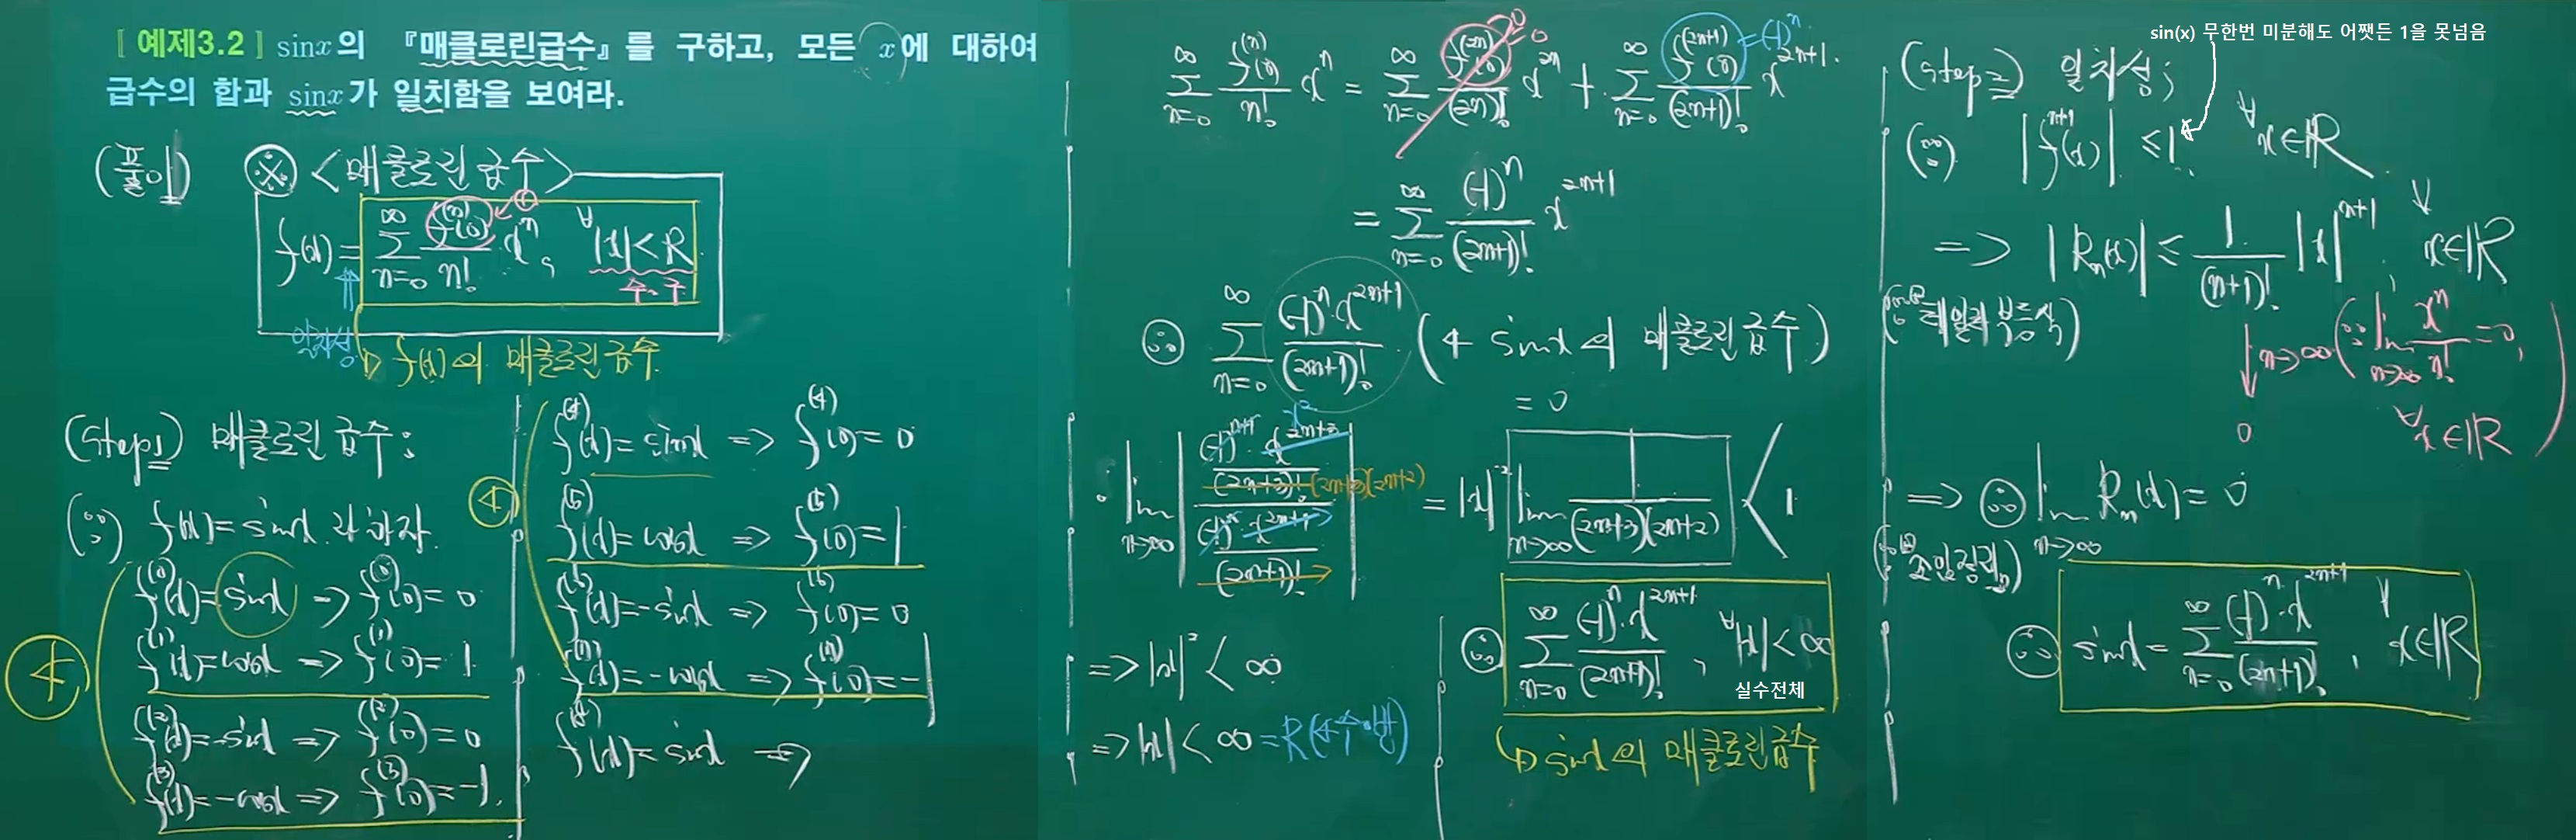 [ 예제3.2 ] sinx의 『매클로린급수』를 구하고, 모든 x에 대하여
급수의 합과 sinx가 일치함을 보여라.
(풀이)
※ <매클로린 급수>
f(x) = ∑_{n=0}^{∞} f^{(n)}(0)/n! x^n, ∀|x|<R
수.구
일치성
↳ f(x)의 매클로린급수
(Step1) 매클로린 급수;
(∵) f(x)=sinx 라 하자.
④
f^{(0)}(x)=sinx => f^{(0)}(0)=0
f^{(1)}(x)=cosx => f^{(1)}(0)=1
f^{(2)}(x)=-sinx => f^{(2)}(0)=0
f^{(3)}(x)=-cosx => f^{(3)}(0)=-1.
④
f^{(4)}(x)=sinx => f^{(4)}(0)=0
f^{(5)}(x)=cosx => f^{(5)}(0)=1
f^{(6)}(x)=-sinx => f^{(6)}(0)=0
f^{(7)}(x)=-cosx => f^{(7)}(0)=-1
f(x)=sinx =>
∑_{n=0}^{∞} f^{(n)}(0)/n! x^n = ∑_{n=0}^{∞} f^{(2n)}(0)/(2n)! x^{2n} + ∑_{n=0}^{∞} f^{(2n+1)}(0)/(2n+1)! x^{2n+1}.
=0
=(-1)^n
= ∑_{n=0}^{∞} (-1)^n/(2n+1)! x^{2n+1}
∴ ∑_{n=0}^{∞} (-1)^n x^{2n+1}/(2n+1)! (← sinx의 매클로린급수)
=0
· lim_{n→∞} |((-1)^{n+1}·x^{2n+3}/(2n+3)!)/((-1)^n·x^{2n+1}/(2n+1)!)| = |x|^2 lim_{n→∞} 1/((2n+3)(2n+2)) < 1
x^2
(2n+3)(2n+2)
=> |x|^2 < ∞
=> |x| < ∞ = R(←수.반)
∴ ∑_{n=0}^{∞} (-1)^n·x^{2n+1}/(2n+1)!, ∀|x|<∞
실수전체
↳ sinx의 매클로린급수
sin(x) 무한번 미분해도 어쨋든 1을 못넘음
(Step2) 일치성;
(∵) |f^{n+1}(x)| ≤ 1, ∀x∈ℝ
=> |R_n(x)| ≤ 1/(n+1)! |x|^{n+1}, ∀x∈ℝ
(∵ 테일러 부등식)
↓ n→∞ (∵ lim_{n→∞} x^n/n! = 0, ∀x∈ℝ)
0
=> ∴ lim_{n→∞} R_n(x) = 0
∴ sinx = ∑_{n=0}^{∞} (-1)^n·x^{2n+1}/(2n+1)!, ∀x∈ℝ